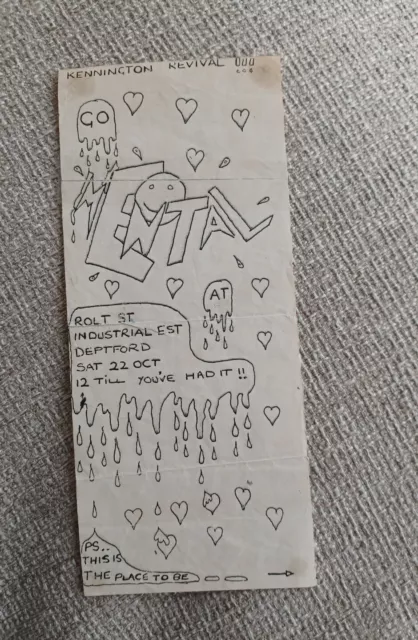 KENNINGTON REVIVAL
GO
MENTAL
AT
ROLT ST
INDUSTRIAL EST
DEPTFORD
SAT 22 OCT
12 TILL YOU'VE HAD IT !!
PS..
THIS IS
THE PLACE TO BE